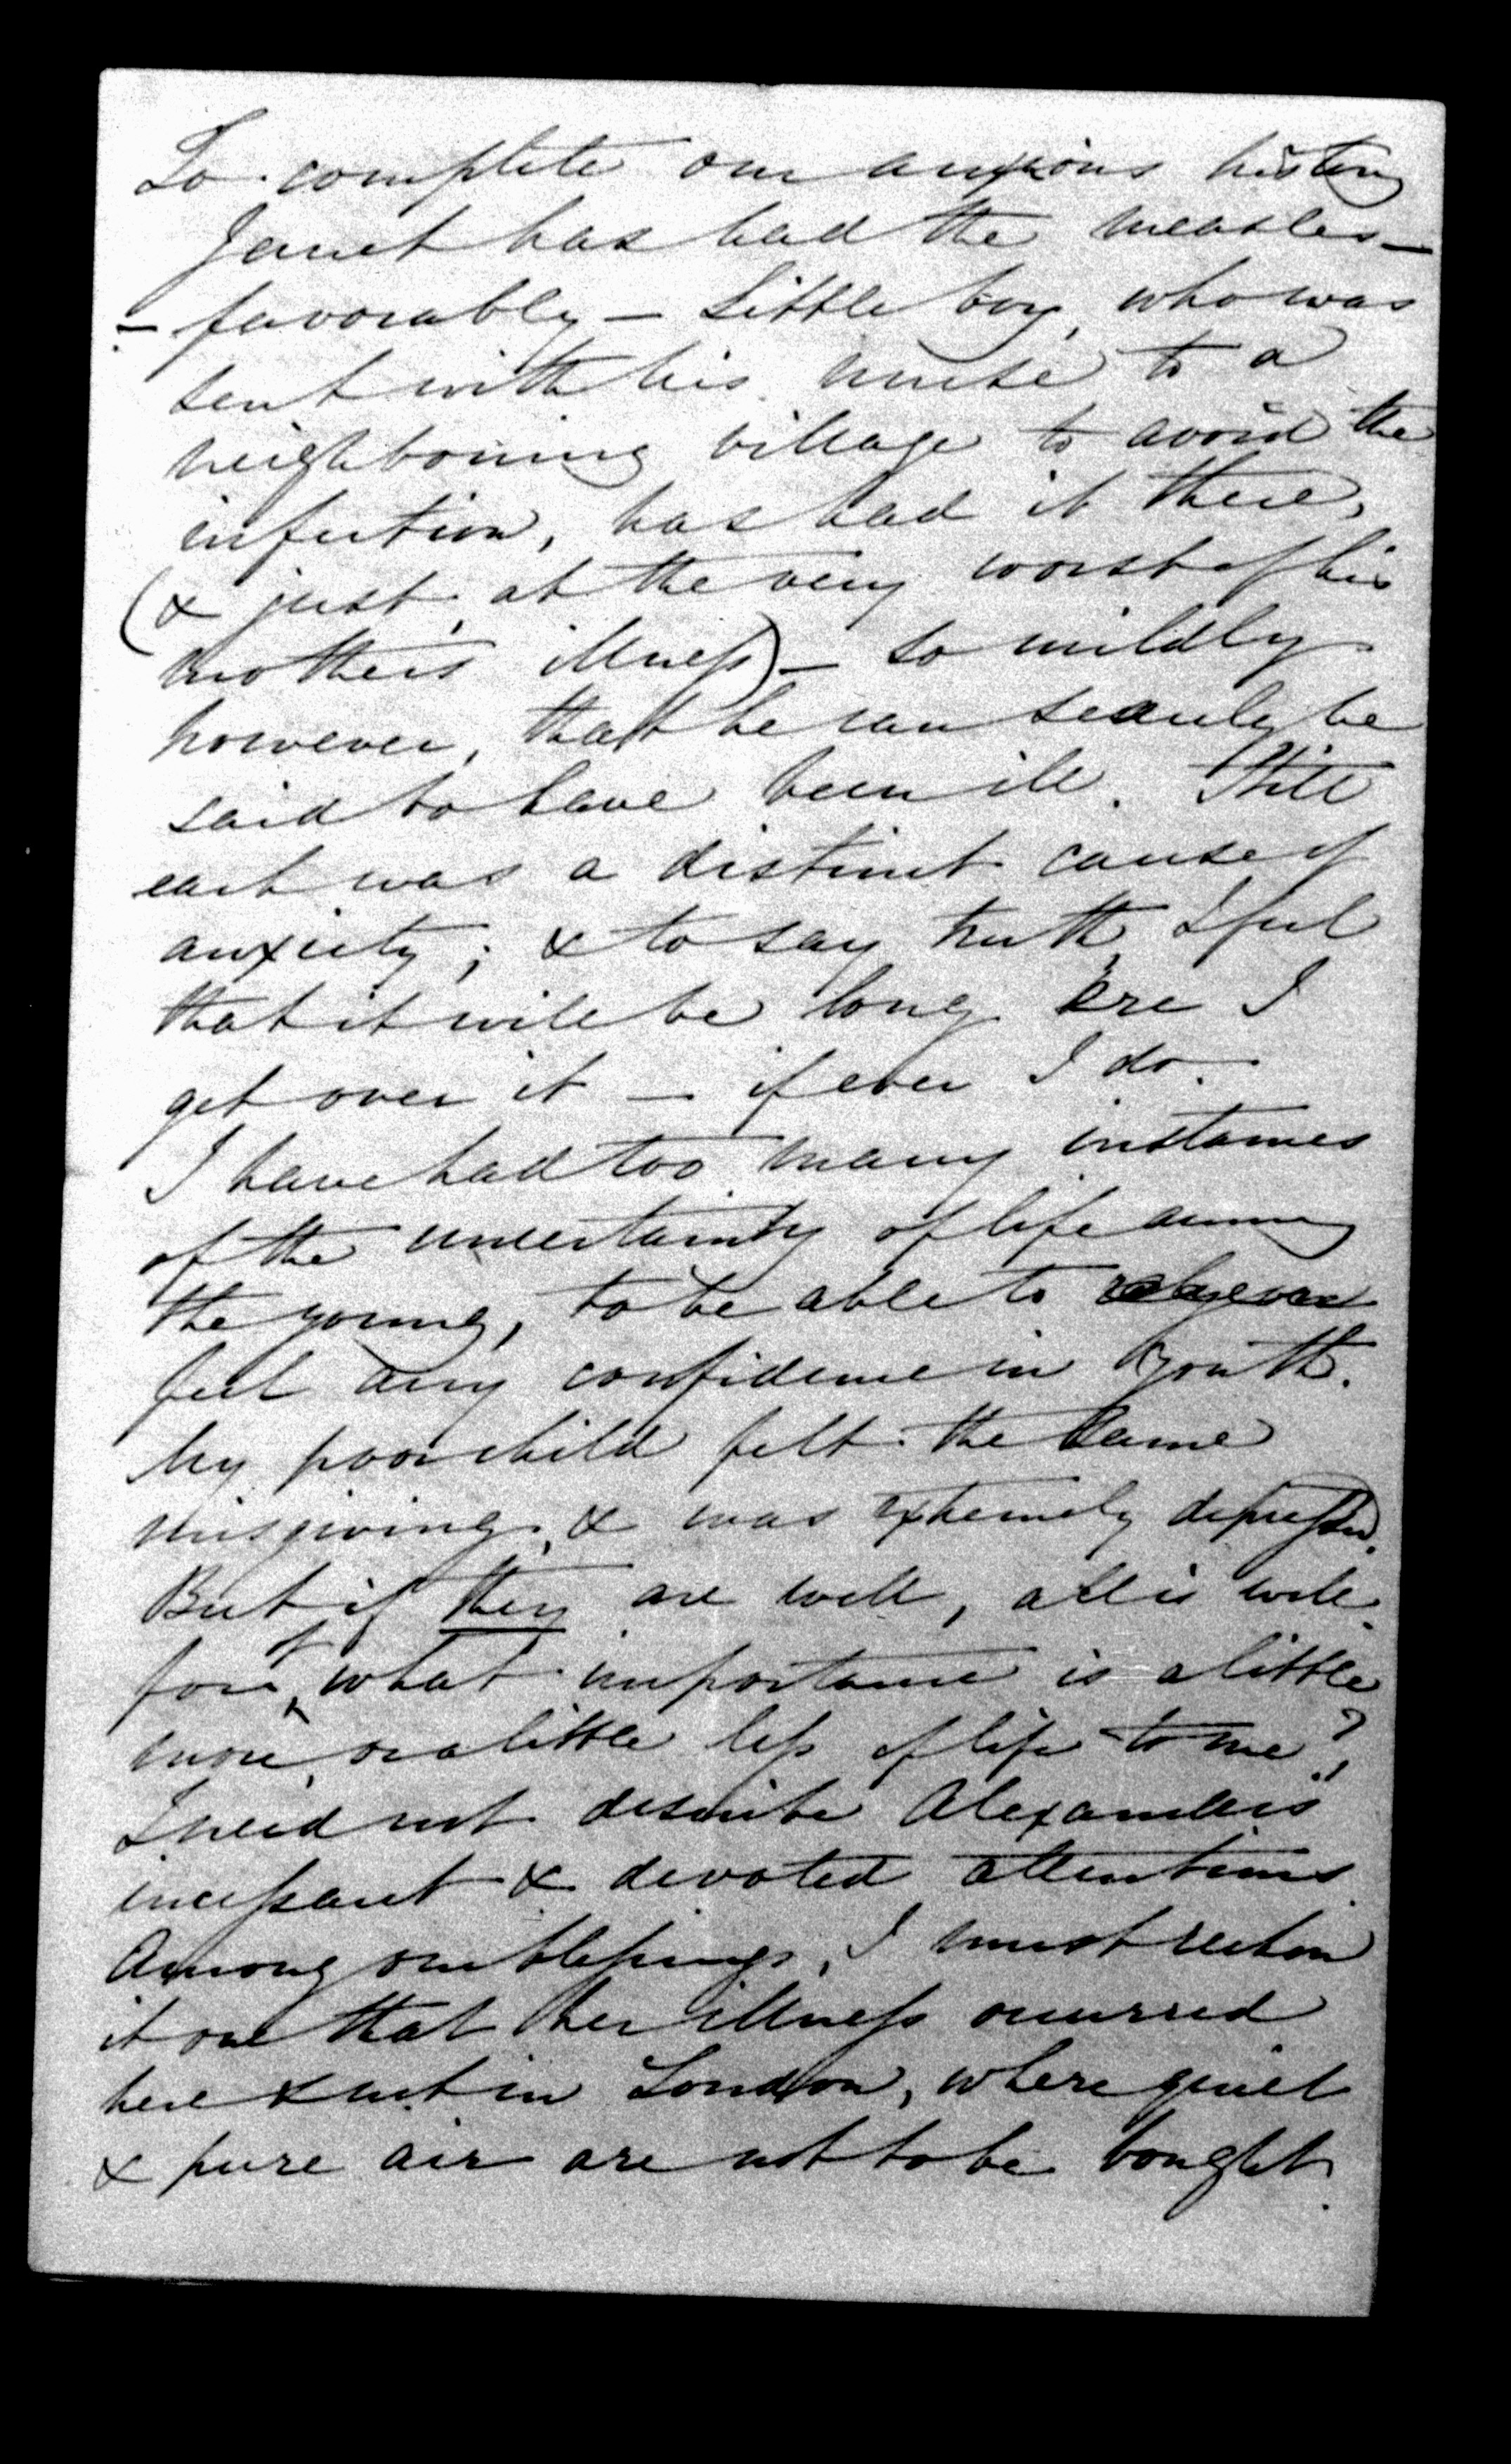 To complete our anxious history
Janet has had the measles —
— favorably — Little boy, who was
sent with his nurse to a
neighbouring village to avoid the
infection, has had it there,
(& just at the very worst of his
mother's illness) — so mildly
however, that he can scarcely be
said to have been ill. Still
each was a distinct cause of
anxiety; & to say truth, I feel
that it will be long ere I
get over it — if ever I do.
I have had too many instances
of the uncertainty of life among
the young, to be able to
feel any confidence in youth.
My poor child felt the same
misgiving, & was extremely depressed.
But if they are well, all is well.
for of what importance is a little
more, or a little less of life to me?
I need not describe Alexander's
incessant & devoted attentions.
Among our blessings, I must reckon
it one that her illness occurred
here & not in London, where quiet
& pure air are not to be bought.